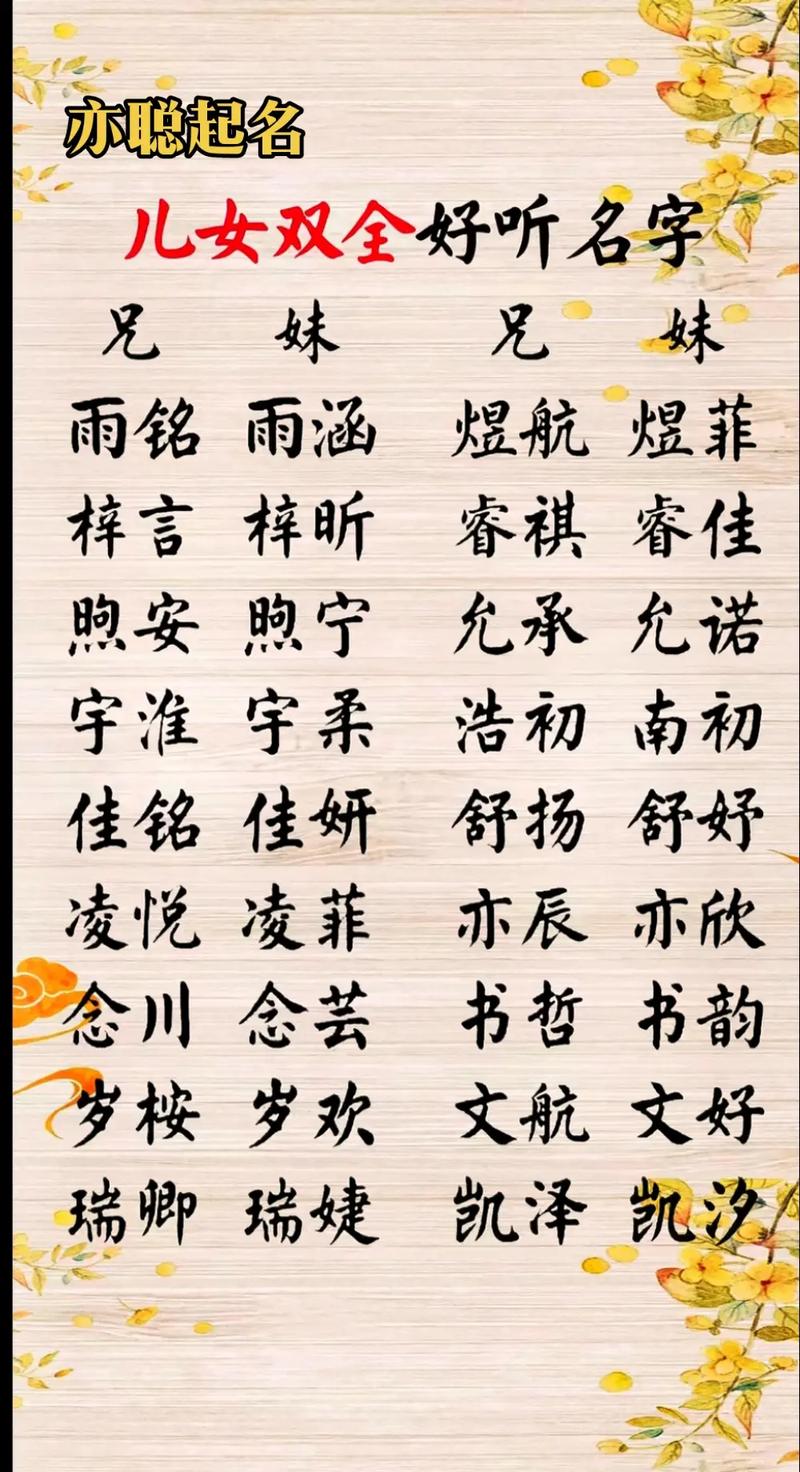 亦聪起名
儿女双全好听名字
兄 妹 兄 妹
雨铭 雨涵 煜航 煜菲
梓言 梓昕 睿祺 睿佳
煦安 煦宁 允承 允诺
宇淮 宇柔 浩初 南初
佳铭 佳妍 舒扬 舒妤
凌悦 凌菲 亦辰 亦欣
念川 念芸 书哲 书韵
岁桉 岁欢 文航 文好
瑞卿 瑞婕 凯泽 凯汐